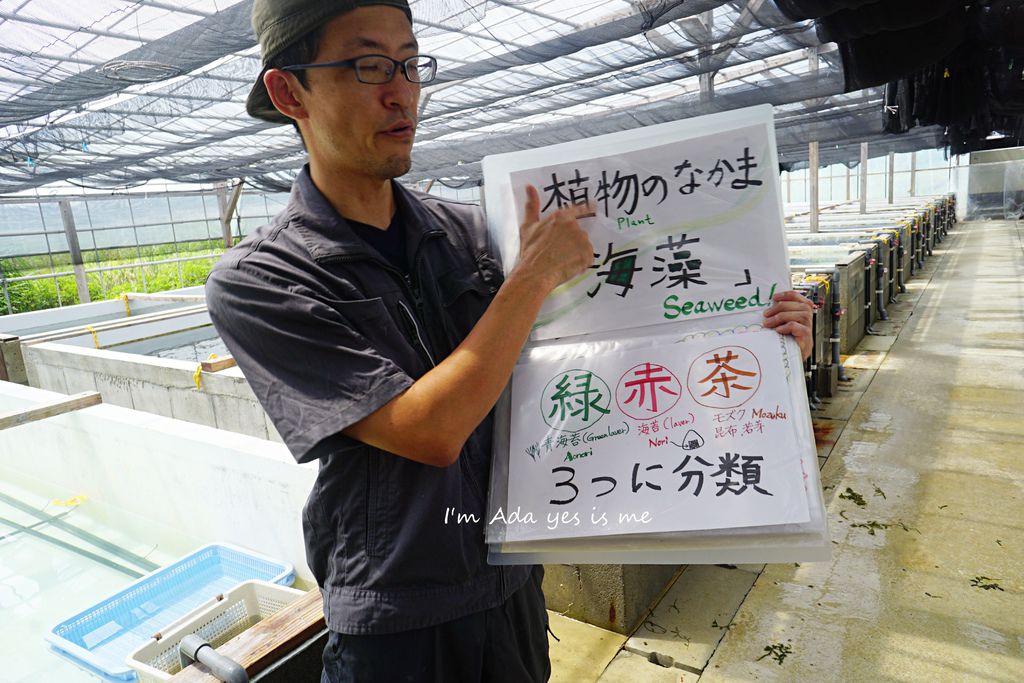 植物のなかま
Plant
海藻」
Seaweed!
緑 赤 茶
青海苔(Green laver) 海苔(laver) モズク Mozuku
Aonori Nori 昆布 若芽
3つに分類
I'm Ada yes is me